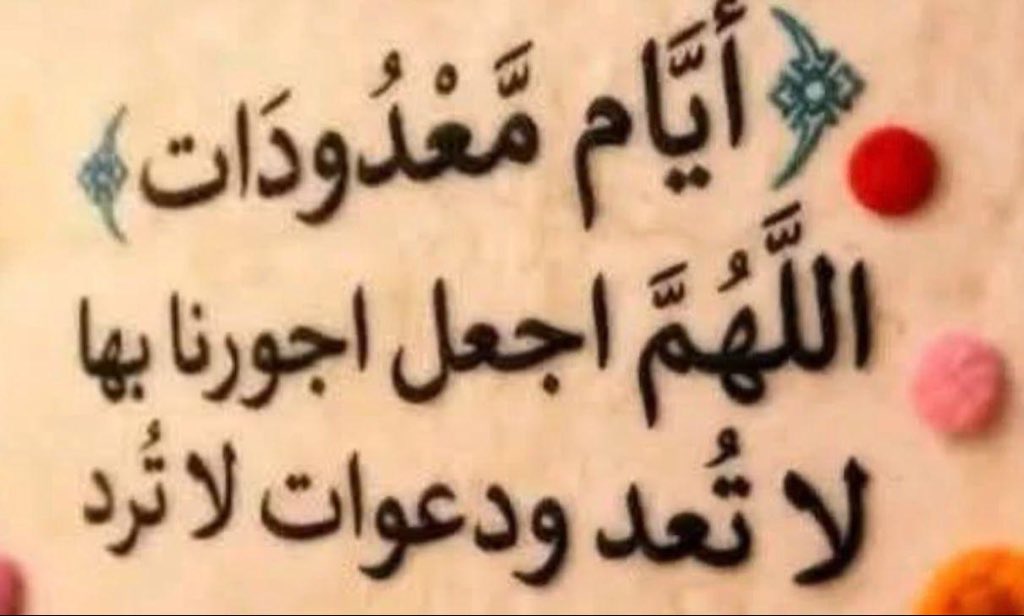 ﴿أيَّام مَّعْدُودَات﴾
اللَّهُمَّ اجعل اجورنا بها
لا تُعد ودعوات لا تُرد